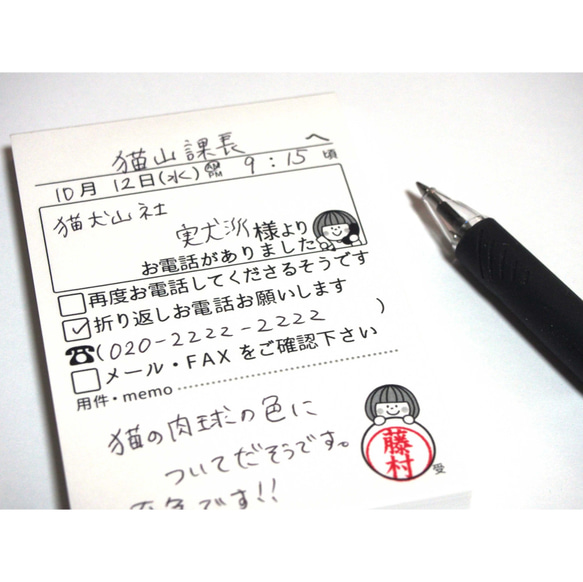 猫山課長 へ
10月 12日(水) AM PM 9:15頃
猫犬山社
実犬派様より
お電話がありました
再度お電話してくださるそうです
折り返しお電話お願いします
☎(020-2222-2222 )
メール・FAXをご確認下さい
用件・memo
猫の肉球の色に
ついてだそうです。
です!!
藤村
受